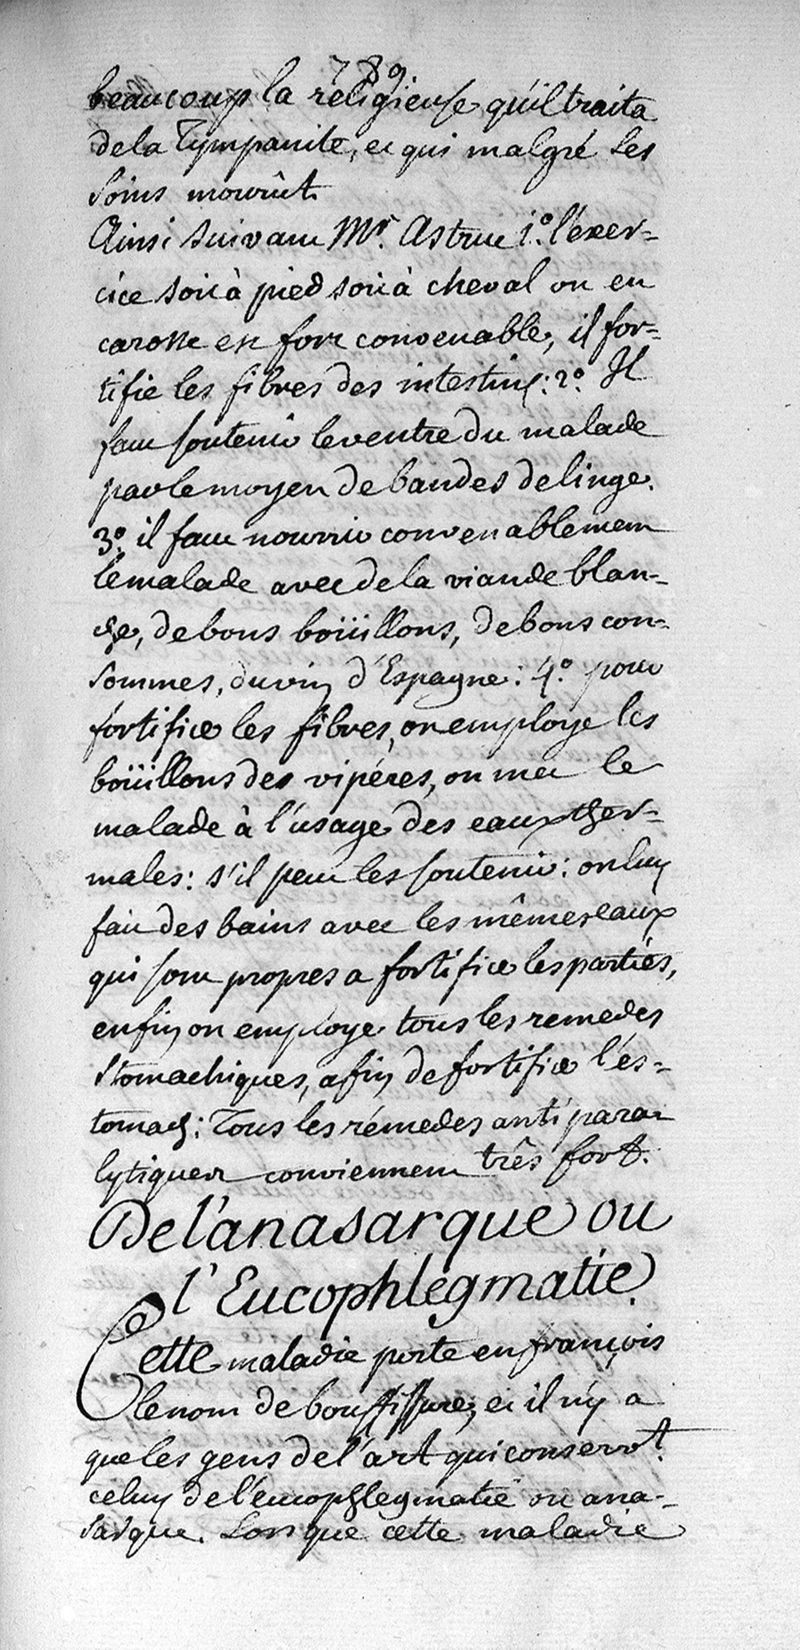 789
beaucoup la religieuse qu'il traita
de la Tympanite, et qui malgré ses
soins mourût.
Ainsi suivant Mr. Astruc 1.º l'exer=
cice soit à pied soit à cheval ou en
carosse est fort convenable, il for=
tifie les fibres des intestins: 2º. Il
faut soutenir le ventre du malade
par le moyen de bandes de linge.
3º. il faut nourrir convenablement
le malade avec de la viande blan=
che, de bons boüillons, de bons con=
sommes, du vin d'Espagne: 4.º pour
fortifier les fibres, on employe les
boüillons des vipéres, on met le
malade à l'usage des eaux ther=
males: s'il peut les soutenir: on luy
fait des bains avec les mêmes eaux
qui sont propres a fortifier les parties,
enfin on employe tous les remedes
stomachiques, afin de fortifier l'es=
tomach: Tous les rémedes anti para
lytiques conviennent três fort.
De l'anasarque ou
l'Eucophlegmatie.
Cette maladie porte en françois
le nom de bouffissure, et il n'y a
que les gens de l'art qui conservt.
celuy de l'eucophlegmatie ou ana=
sarque. Lorsque cette maladie